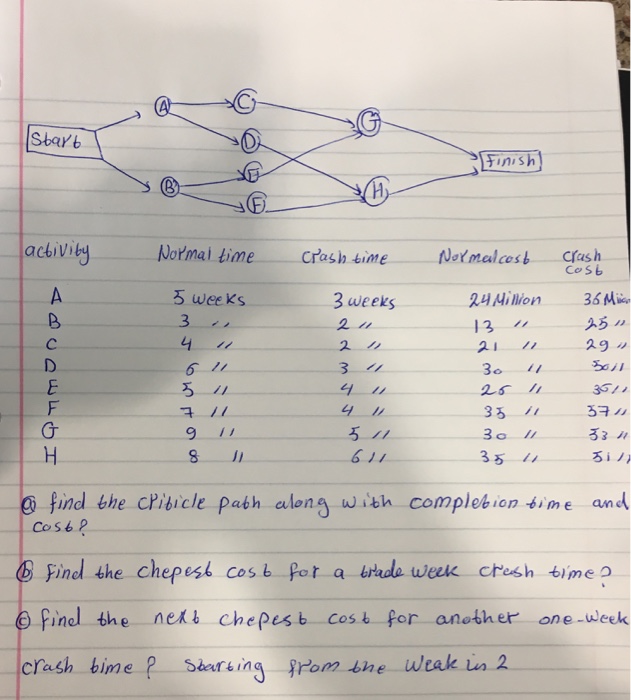 Start
A
C
D
B
E
F
G
H
finish
activity Normal time Crash time Normal cost Crash cost
A 5 weeks 3 weeks 24 Million 36
B 3 " 2 " 13 " 25 "
C 4 " 2 " 21 " 29 "
D 6 " 3 " 30 "
E 5 " 4 " 25 " 35 "
F 7 " 4 " 35 " 37 "
G 9 " 5 " 30 " 53 "
H 8 " 6 " 35 " 51 "
ⓐ find the criticle path along with completion time and
cost?
ⓑ Find the chepest cost for a trade week crash time?
ⓒ find the next chepest cost for another one-week
crash time? starting from the weak in 2